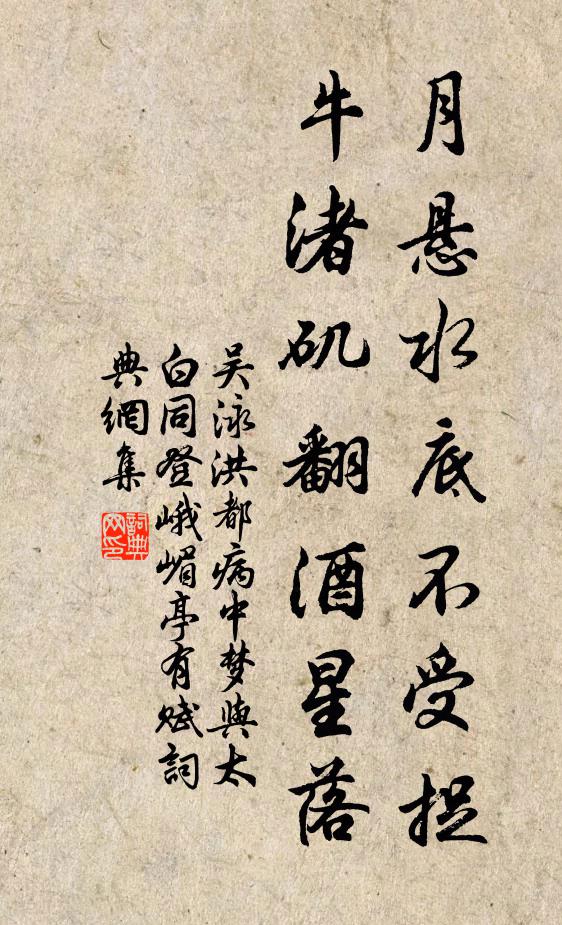 月悬水底不受捉
牛渚矶翻酒星落
吴泳洪都病中梦与太
白同登峨嵋亭有赋詞
典網集
詞典網印